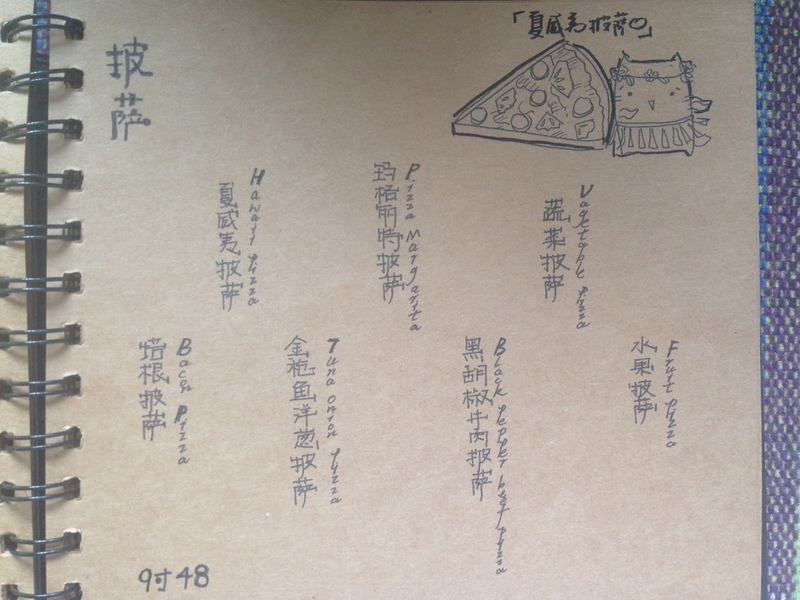 披萨
「夏威夷披萨」
夏威夷披萨
Hawaii Pizza
玛格丽特披萨
Pizza Margarita
蔬菜披萨
Vagetable Pizza
培根披萨
Bacn Pizza
金枪鱼洋葱披萨
Tuna Onion Pizza
黑胡椒牛肉披萨
Black Pepper beef Pizza
水果披萨
Fruit Pizza
9寸48